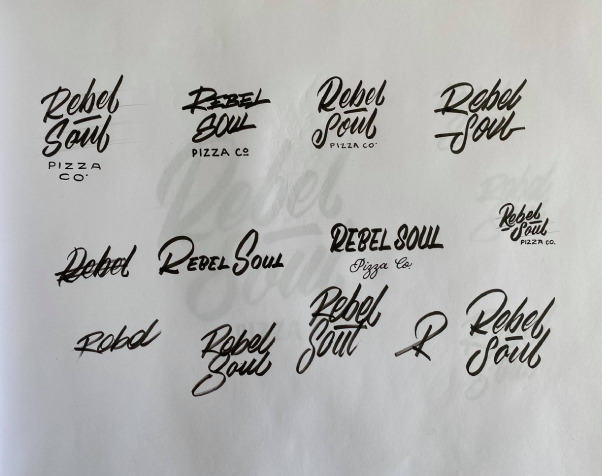 Rebel
Soul
PIZZA
CO.
REBEL
SOUL
PIZZA CO
Rebel
Soul
PIZZA CO.
Rebel
Soul
Rebel
REBEL SOUL
REBEL SOUL
Pizza Co.
Rebel
Soul
PIZZA CO.
Rebel
Rebel
Soul
Rebel
Soul
R
Rebel
Soul
Rebel
Soul